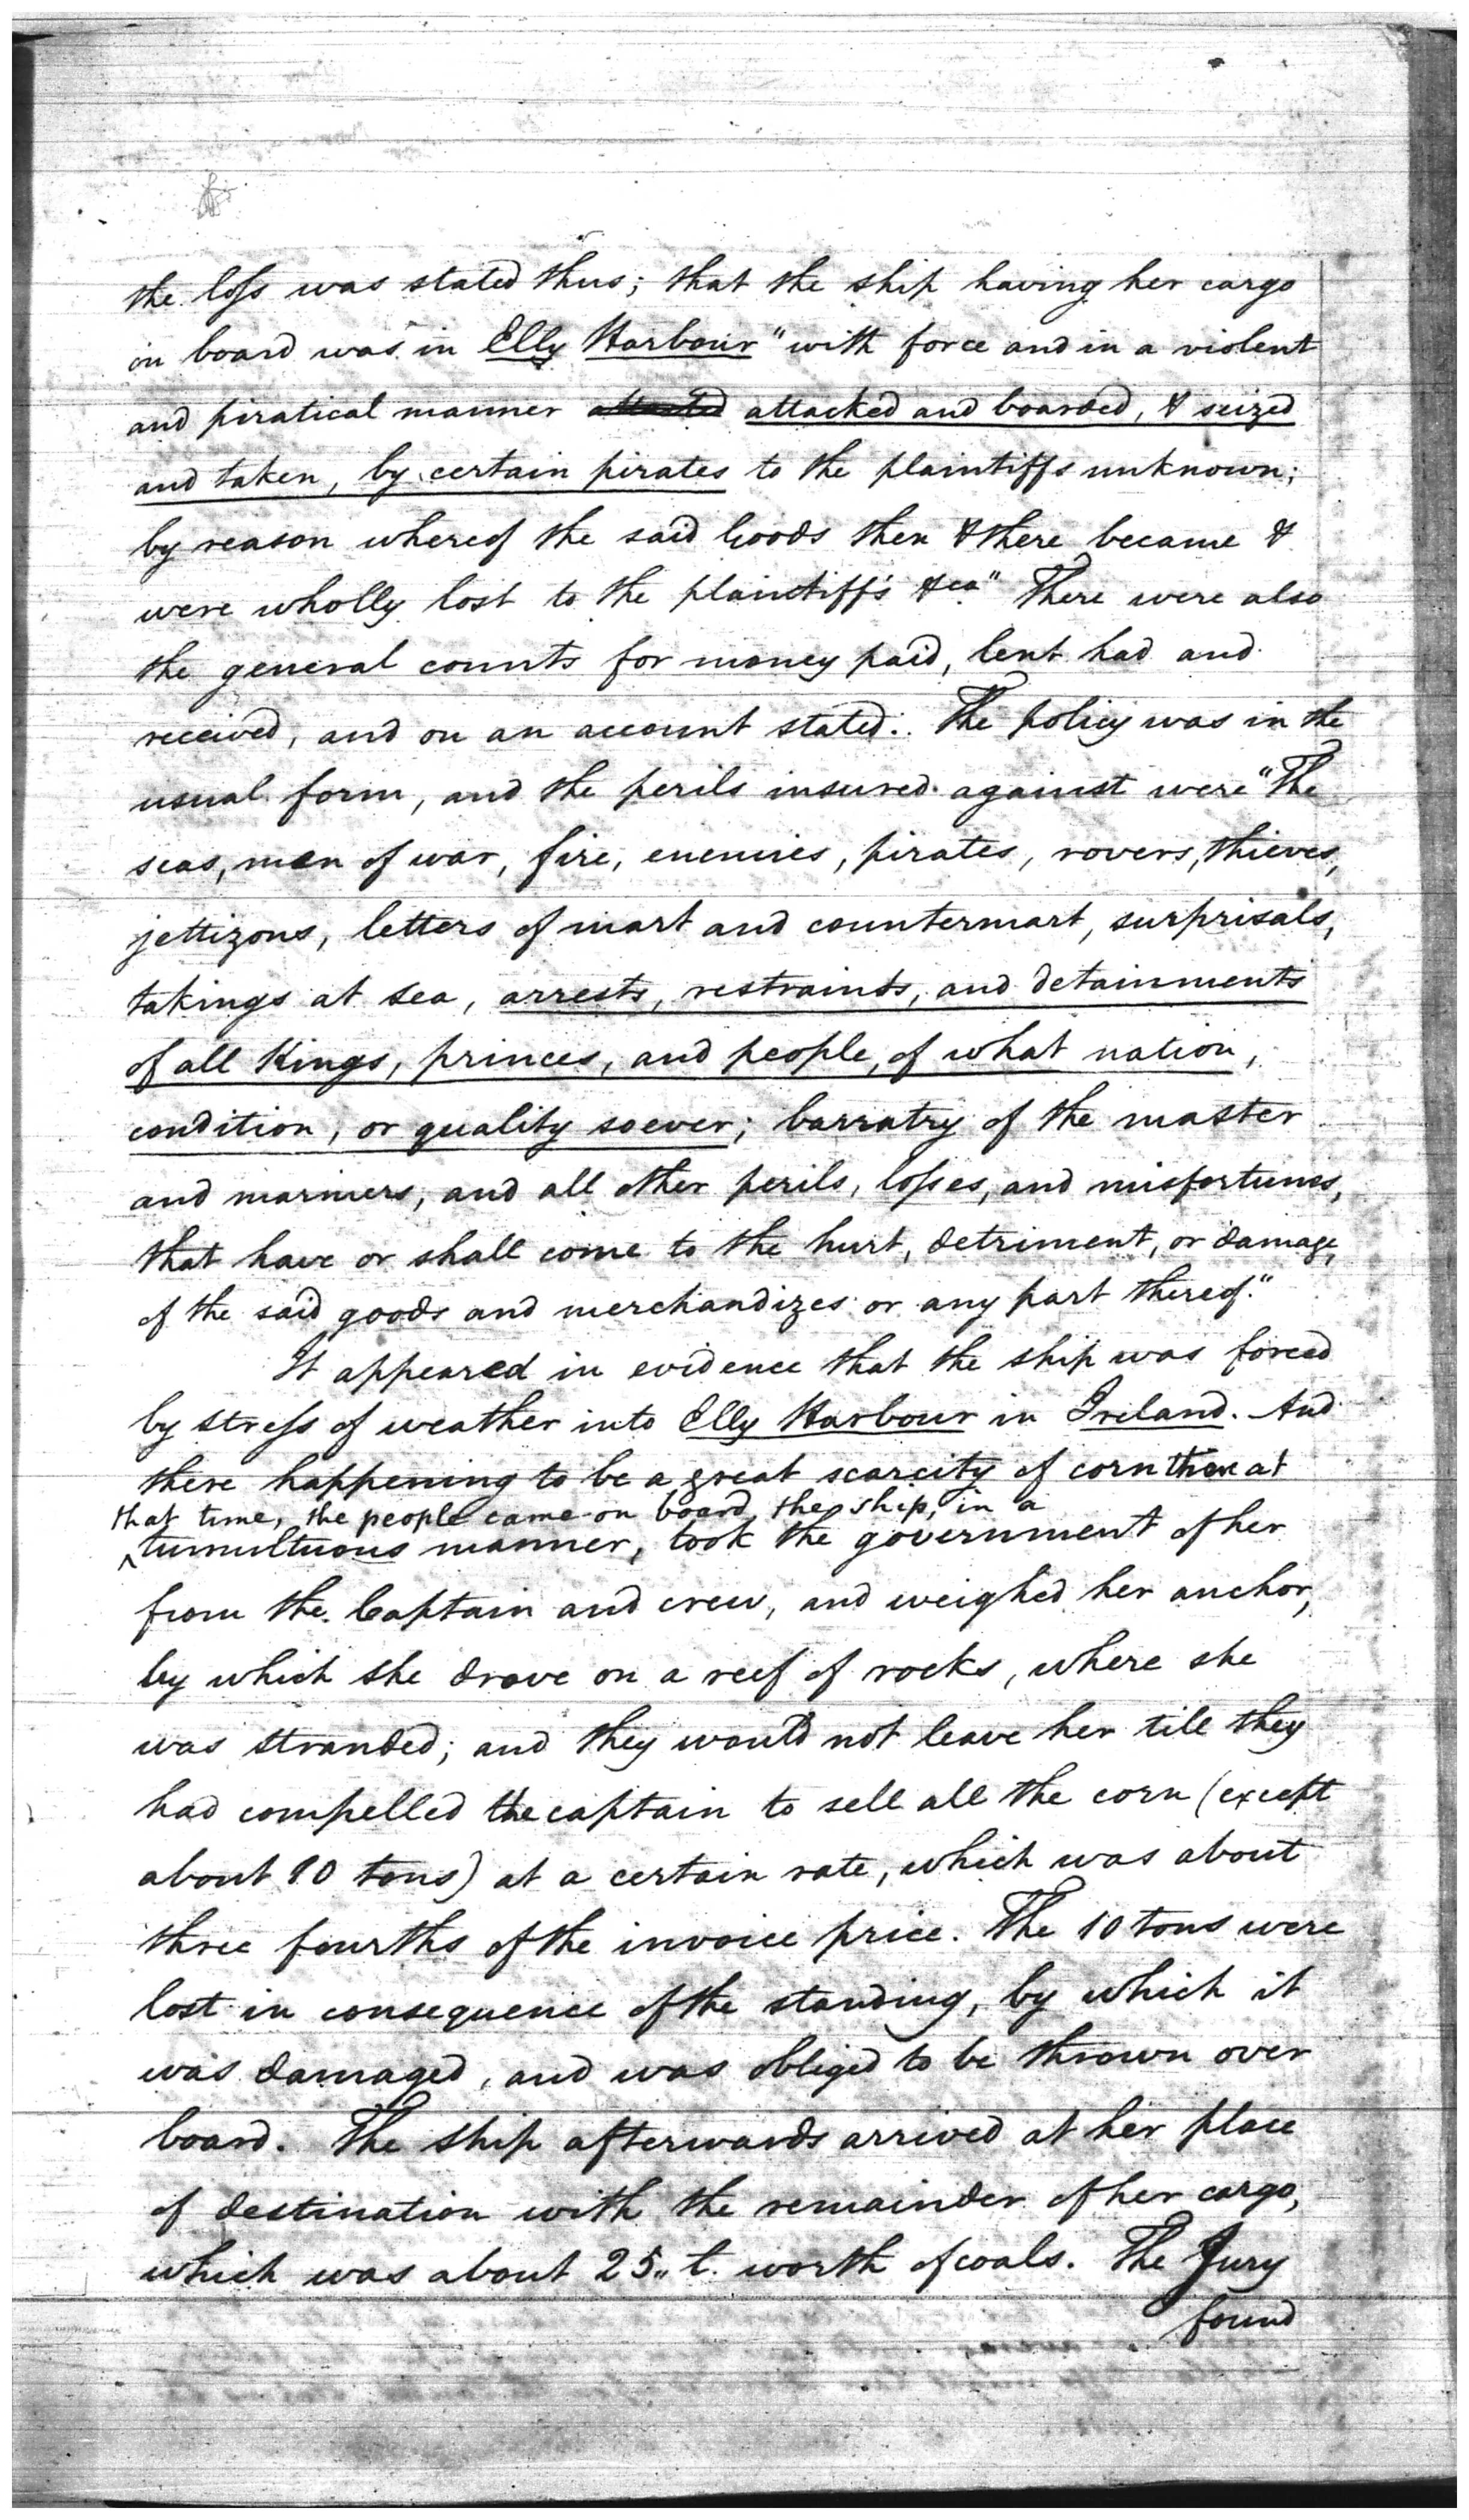 the loſs was stated thus; that the ship having her cargo
on board was in Elly Harbour "with force and in a violent
and piratical manner attacked and boarded, & seized
and taken, by certain pirates to the plaintiffs unknown;
by reason whereof the said Goods then & there became &
were wholly lost to the plaintiff's &ca" There were also
the general counts for money paid, lent had and
received, and on an account stated. The policy was in the
usual form, and the perils insured against were "The
seas, men of war, fire, enemies, pirates, rovers, thieves,
jettizons, letters of mart and countermart, surprisals,
takings at sea, arrests, restraints, and detainments
of all Kings, princes, and people, of what nation,
condition, or quality soever; barratry of the master
and mariners, and all other perils, loſses, and misfortunes,
that have or shall come to the hurt, detriment, or damage,
of the said goods and merchandizes or any part thereof."
It appeared in evidence that the ship was forced
by streſs of weather into Elly Harbour in Ireland. And
there happening to be a great scarcity of corn then at
that time, the people came on board the ship, in a
tumultuous manner, took the government of her
from the Captain and crew, and weighed her anchor,
by which she drove on a reef of rocks, where she
was stranded; and they would not leave her till they
had compelled the captain to sell all the corn (except
about 10 tons) at a certain rate, which was about
three fourths of the invoice price. The 10 tons were
lost in consequence of the standing, by which it
was damaged, and was obliged to be thrown over
board. The ship afterwards arrived at her place
of destination with the remainder of her cargo,
which was about 25,, t. worth of coals. The Jury
found